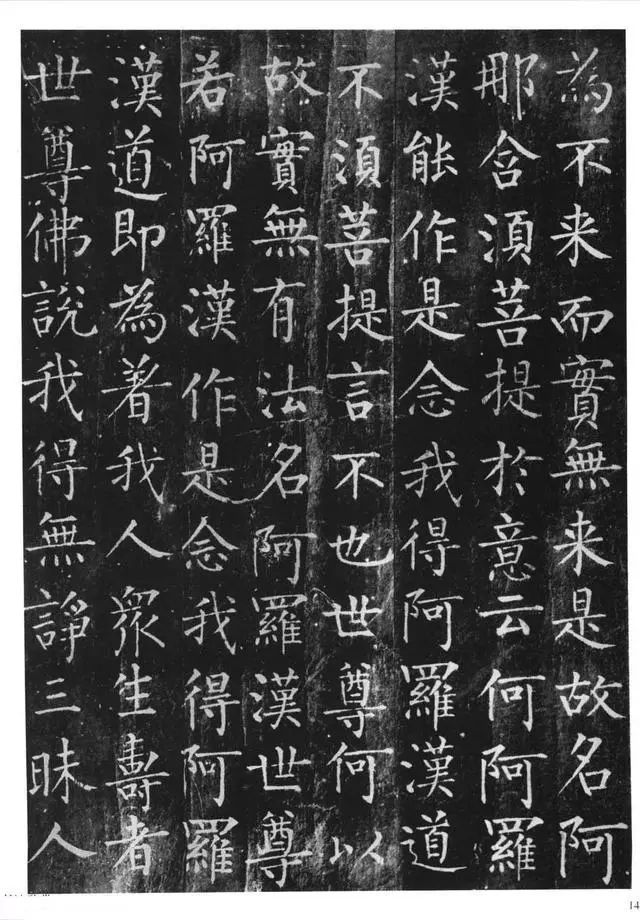 為不来而實無来是故名阿
那含須菩提於意云何阿羅
漢能作是念我得阿羅漢道
不須菩提言不也世尊何以
故實無有法名阿羅漢世尊
若阿羅漢作是念我得阿羅
漢道即為著我人衆生壽者
世尊佛說我得無諍三昧人
14